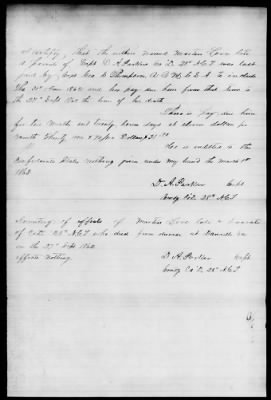 I certify, that the within named Martin Love late
a private of Capt D. A. Parkers Co "D" 28th NCT was last
paid by Capt Geo. S. Thompson A. Q. M. C. S. A. to include
the 30 June 1862 and his pay due him from that time is
the 27th Sept 1862 the time of his death
There is pay due him
for two months and twenty seven days at eleven dollars per
month Thirty one & Dollars $31
He is indebted to the
Confederate States nothing given under my hand this March 1st
1863
D. A. Parker Capt
Comdg Co "D" 28th NCT
Inventory of effects of Martin Love late a private
of Co "D" 28th NCT who died from disease at
on the 27th Sept 1862
effects nothing.
D. A. Parker Capt
Comdg Co "D" 28 NCT